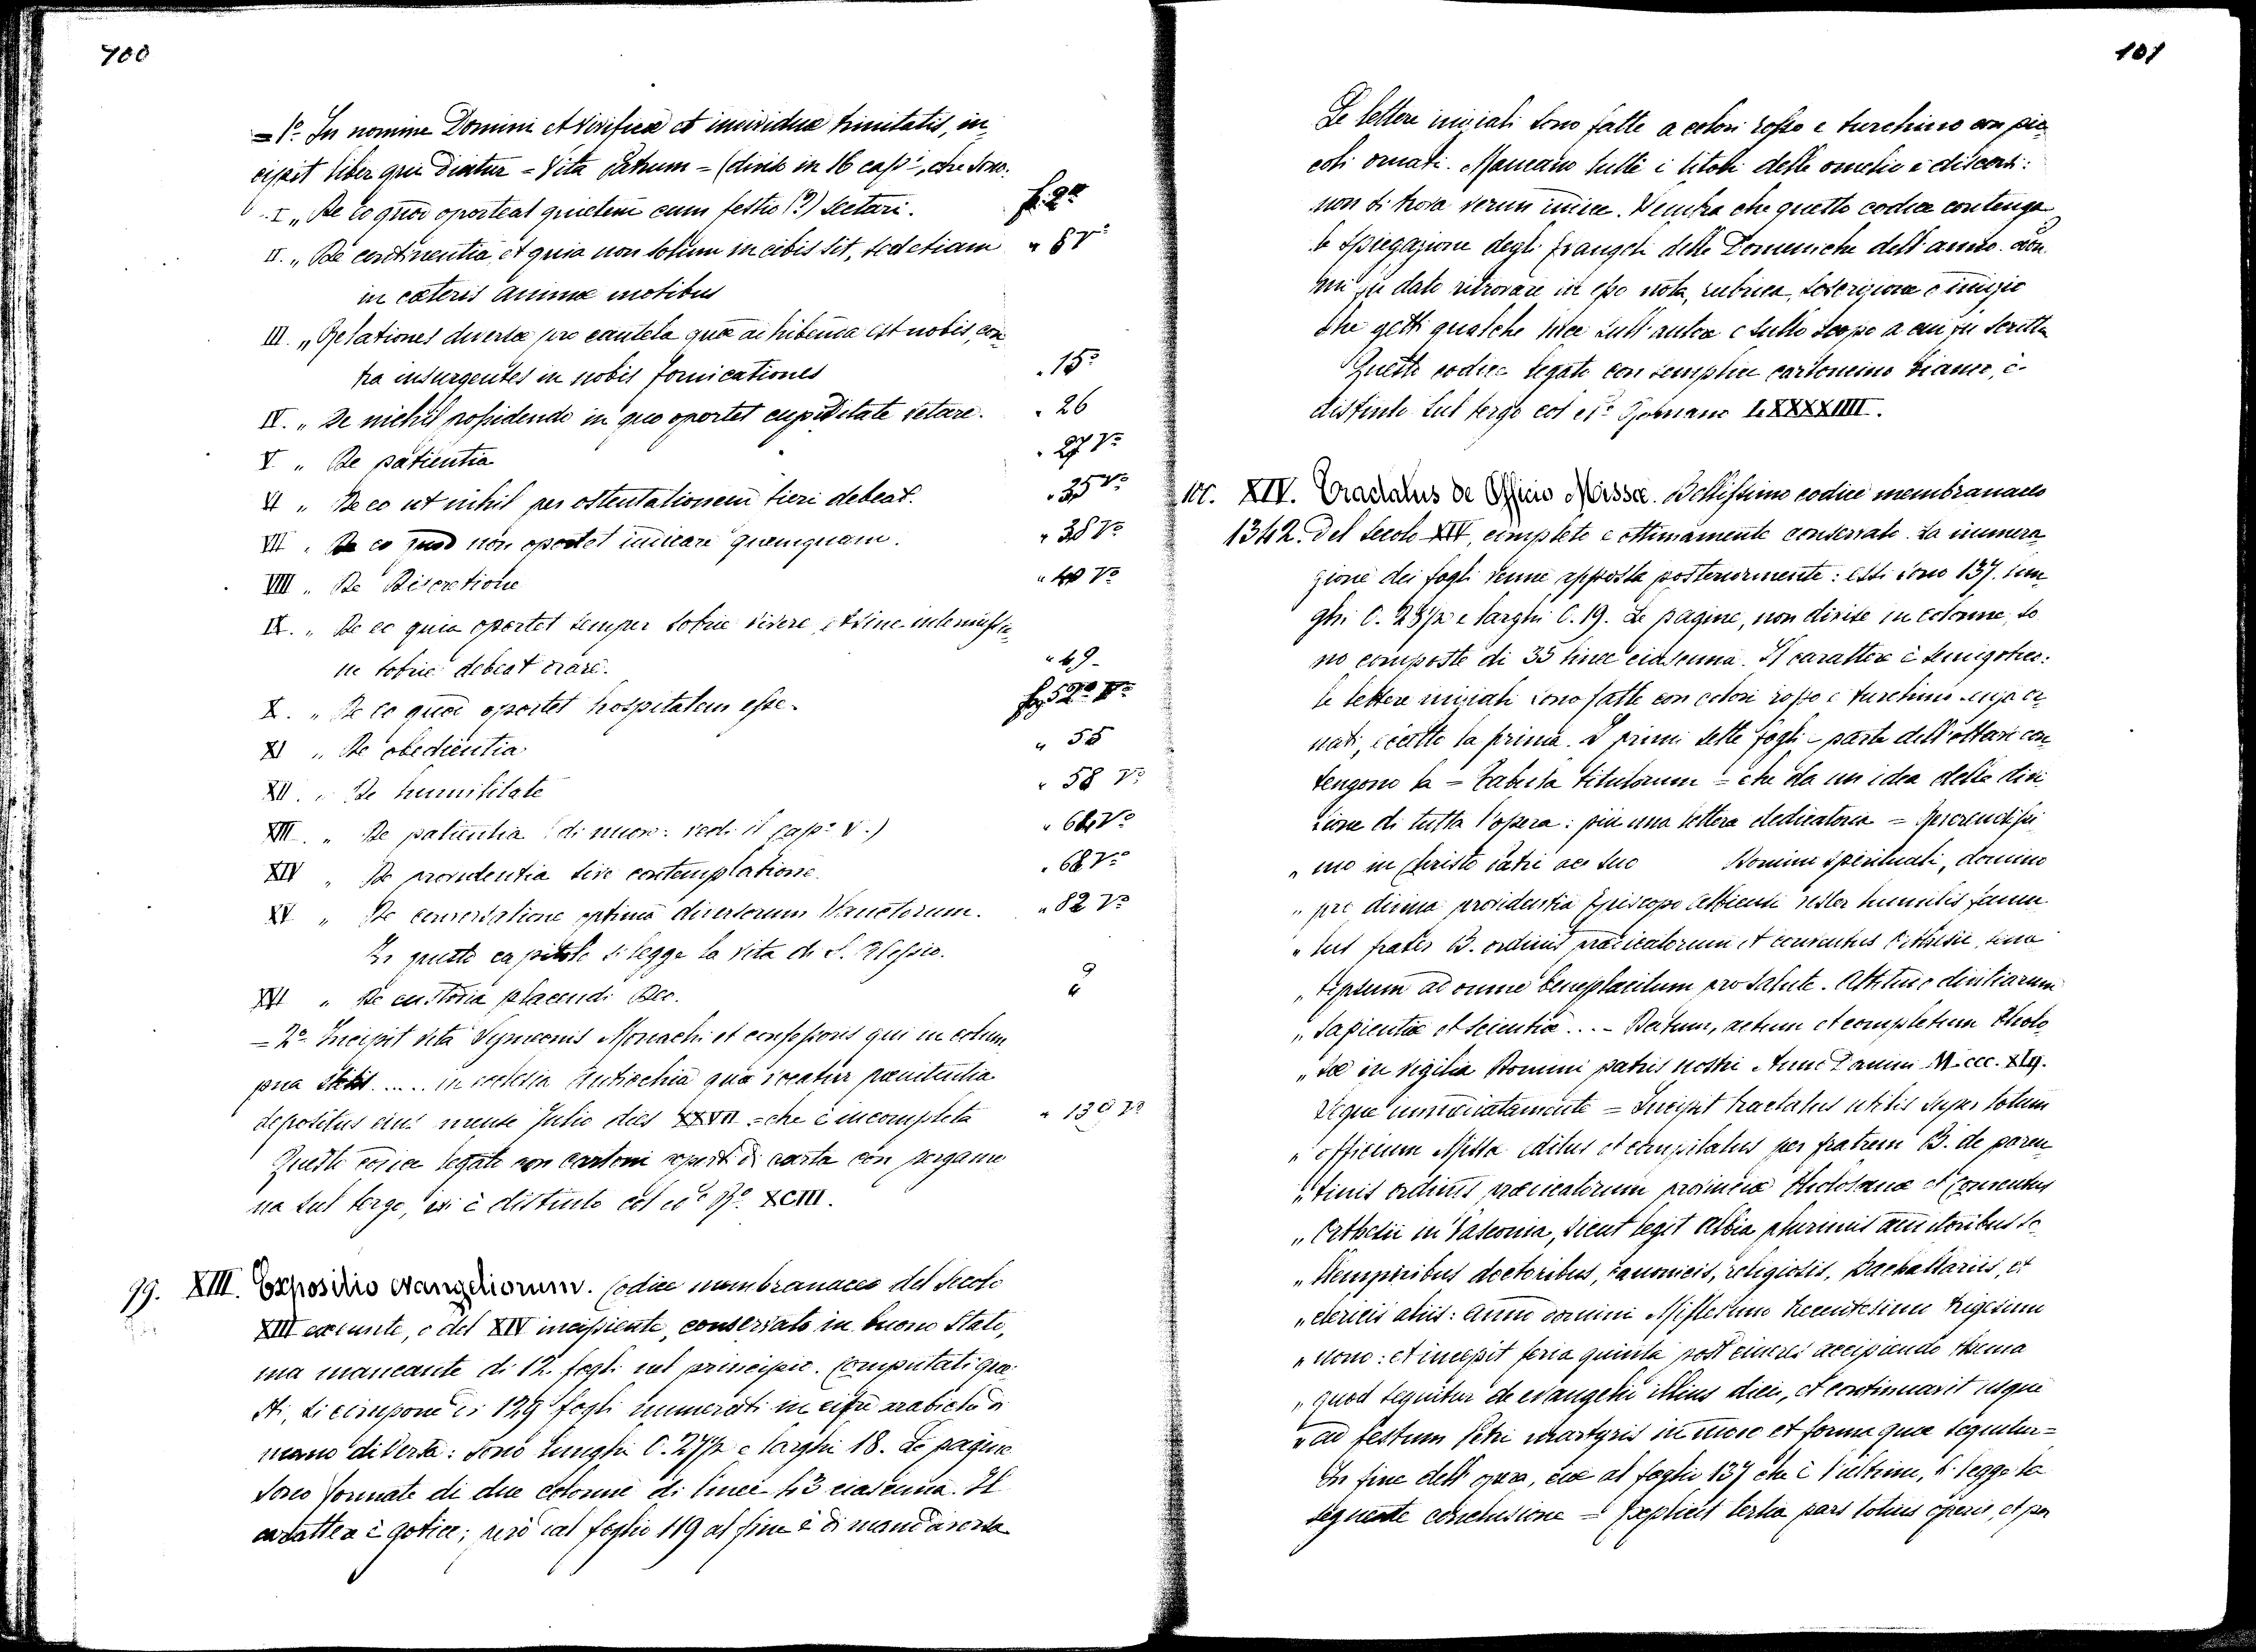 100
= 1º In nomine Domini et vivificæ et individuæ trinitatis, in
cipit liber qui dicitur = Vita Patrum = (diviso in 16 capi, che sono:
I „ De eo quod oporteat quietem cum festio (?) sectari. f. 2º
II. „ De continentia, et quia non solum in cibis sit, sed etiam „ 8 vº
in cæteris animæ motibus
III. „ Relationes diversæ pro cautela quæ adhibenda est nobis, con
tra insurgentes in nobis fornicationes „ 15º
IV. „ De nichil possidendo in quo oportet cupiditate vetare. „ 26
V „ De patientia „ 27 vº
VI „ De eo ut nihil per ostentationem fieri debeat. „ 35 vº
VII „ De eo quod non oportet iudicare quemquam. „ 38 vº
VIII „ De Discretione „ 40 vº
IX. „ De eo quia oportet semper sobrie vivere, et sine intermissio
ne sobrie debeat orare. „ 49
X. „ De eo quod oportet hospitalem esse. fº 52º vº
XI „ De obedientia „ 55
XII. „ De humilitate „ 58 vº
XIII. „ De patientia (di nuovo: vedi il capº V.) „ 64 vº
XIV „ De providentia sive contemplatione. „ 68 vº
XV „ De conversatione optima diversorum Sanctorum. „ 82 vº
In questo capitolo si legge la vita di S. Alessio.
XVI „ De custodia placendi Deo. „ ?
= 2º Incipit vita Symeonis Monachi et confessoris qui in colum
pna stetit ..... in ecclesia Antiochia qua vocatur pænitentia
depositus eius mense Julio dies XXVII = che è incompleta „ 139 vº
Questo codice legato con cartoni coperti di carta con pergame
na sul tergo, ivi è distinto col nº Rº XCIII.
99. XIII. Expositio evangeliorum. Codice membranaceo del Secolo
XIII exeunte, o del XIV incipiente, conservato in buono Stato,
ma mancante di 12. fogli nel principio. Computati que
sti, si compone di 129 fogli numerati in cifre arabiche di
mano diversa: sono lunghi C. 27½ e larghi 18. Le pagine
sono formate di due colonne di linee 43 ciascuna. Il
carattere è gotico; però dal foglio 119 al fine è di mano diversa
101
Le lettere iniziali sono fatte a colori rosso e turchino con pic
coli ornati. Mancano tutti i titoli delle omelie e discorsi:
non si trova verun indice. Sembra che questo codice contenga
la spiegazione degli Evangeli delle Domeniche dell'anno. Non
mi fu dato ritrovare in esso nota, rubrica, soscrizione o indizio
che getti qualche luce sull'autore e sullo scopo a cui fu scritto
Questo codice legato con semplice cartoncino bianco, è
distinto sul tergo col nº Romano LXXXXIIII.
100. XIV. Tractatus de Officio Missæ. Bellissimo codice membranaceo
1342. del Secolo XIV, completo e ottimamente conservato. La numera
zione dei fogli venne apposta posteriormente: essi sono 137. lun
ghi C. 28½ e larghi C. 19. Le pagine, non divise in colonne, so
no composte di 35 linee ciascuna. Il carattere è semigotico:
le lettere iniziali sono fatte con colori rosso e turchino senza or
nati, eccetto la prima. I primi sette fogli e parte dell'ottavo con
tengono la = Tabula titulorum = che da un idea della divi
sione di tutta l'opera: più una lettera dedicatoria = Reverendissi
„ mo in Christo Patri ac suo Domino spirituali, domino
„ pre divina providentia Episcopo Albiensi vester humilis famu
„ lus frater B. ordinis prædicatorum et conventus Orthesii, seme
„ tipsum ad omne beneplacitum pro salute. Altitudo divitiarum
„ sapientiæ et scientiæ .... Datum, actum et completum Tholo
„ sæ in vigilia Domini patris nostri Anno Domini M.ccc.XLIJ.
Segue immediatamente = Incipit tractatus utilis super totum
„ officium Missæ editus et compilatus per fratrem B. de paren
„ tinis ordinis prædicatorum provinciæ Tholosanæ et conventus
„ Orthesii in Vasconia, sicut legit Albia plurimis auditoribus so
„ llempnibus doctoribus, canonicis, religiosis, Bachallariis, et
„ clericis aliis: anno domini Millesimo trecentesimo trigesimo
„ nono: et incepit feria quinta post cineres accipiendo thema
„ quod sequitur de evangelio illius diei, et continuavit usque
„ ad festum Petri martyris in modo et forma quæ sequitur =
In fine dell'opera, cioè al foglio 137 che è l'ultimo, si legge la
seguente conclusione = Explicit tertia pars totius operis, et per